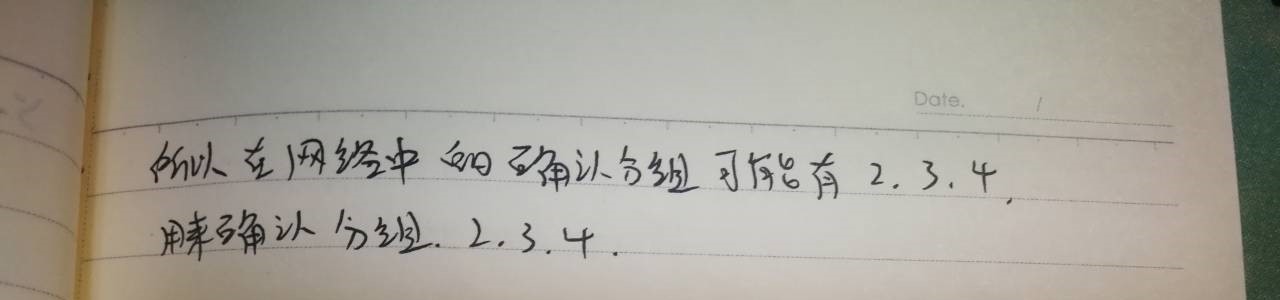 Date. /
所以在网络中的确认分组可能有 2. 3. 4.
用来确认分组. 2. 3. 4.